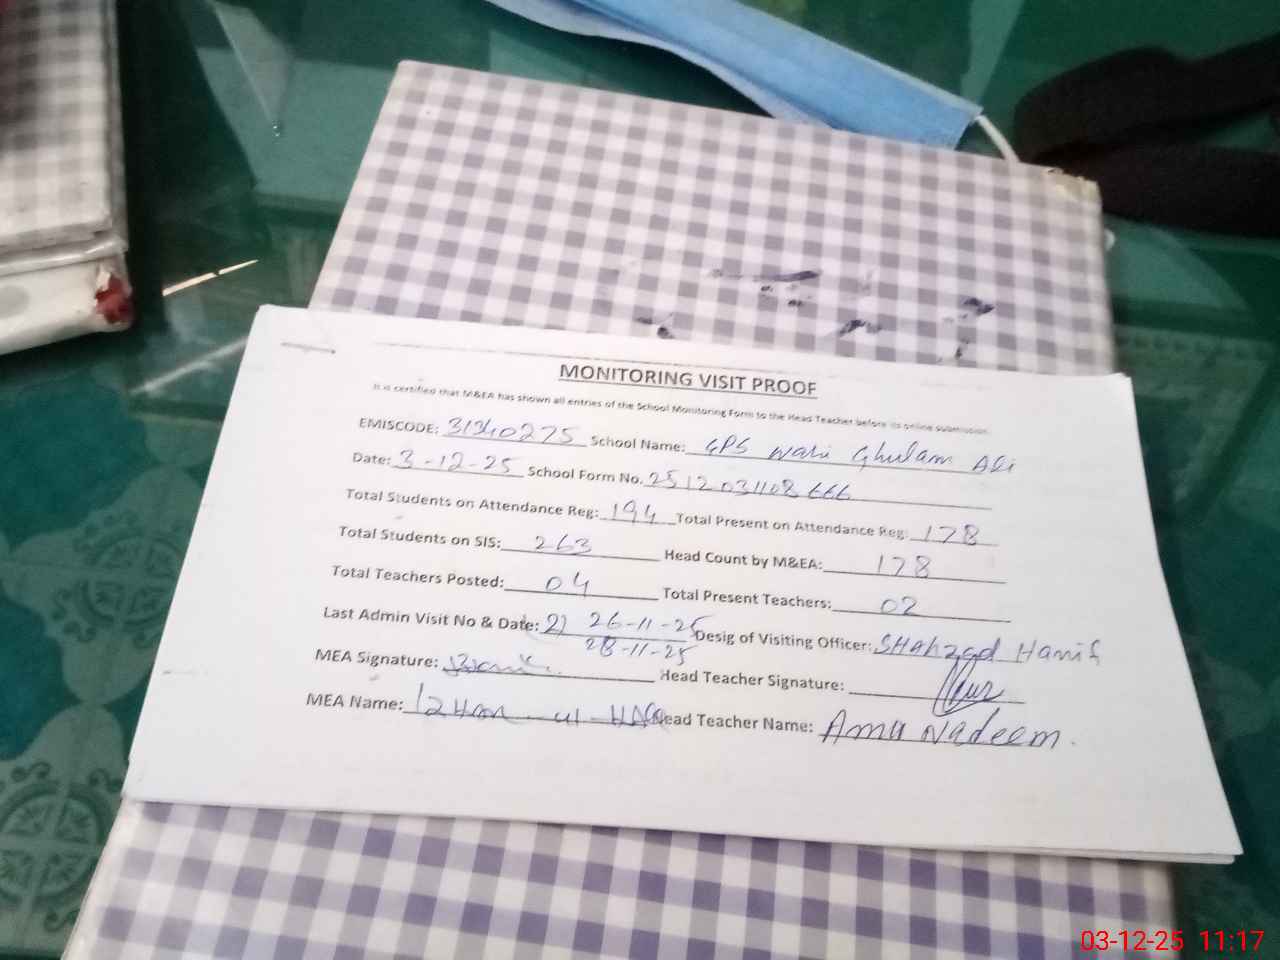 MONITORING VISIT PROOF
It is certified that M&EA has shown all entries of the School Monitoring Form to the Head Teacher before its online submission.
EMISCODE: 31340275 School Name: GPS Wahi Ghulam Ali
Date: 3-12-25 School Form No. 2512031108666
Total Students on Attendance Reg: 194 Total Present on Attendance Reg: 178
Total Students on SIS: 263 Head Count by M&EA: 178
Total Teachers Posted: 04 Total Present Teachers: 02
Last Admin Visit No & Date: 2) 26-11-25 Desig of Visiting Officer: SHahzad Hanif
28-11-25
MEA Signature: Head Teacher Signature:
MEA Name: Izhar ul HAQ Head Teacher Name: Ama Nadeem.
03-12-25 11:17